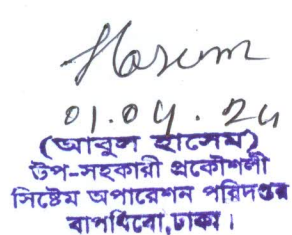 Hasem
01.04.24
(আবুল হাসেম)
উপ-সহকারী প্রকৌশলী
সিষ্টেম অপারেশন পরিদপ্তর
বাপবিবো,ঢাকা।